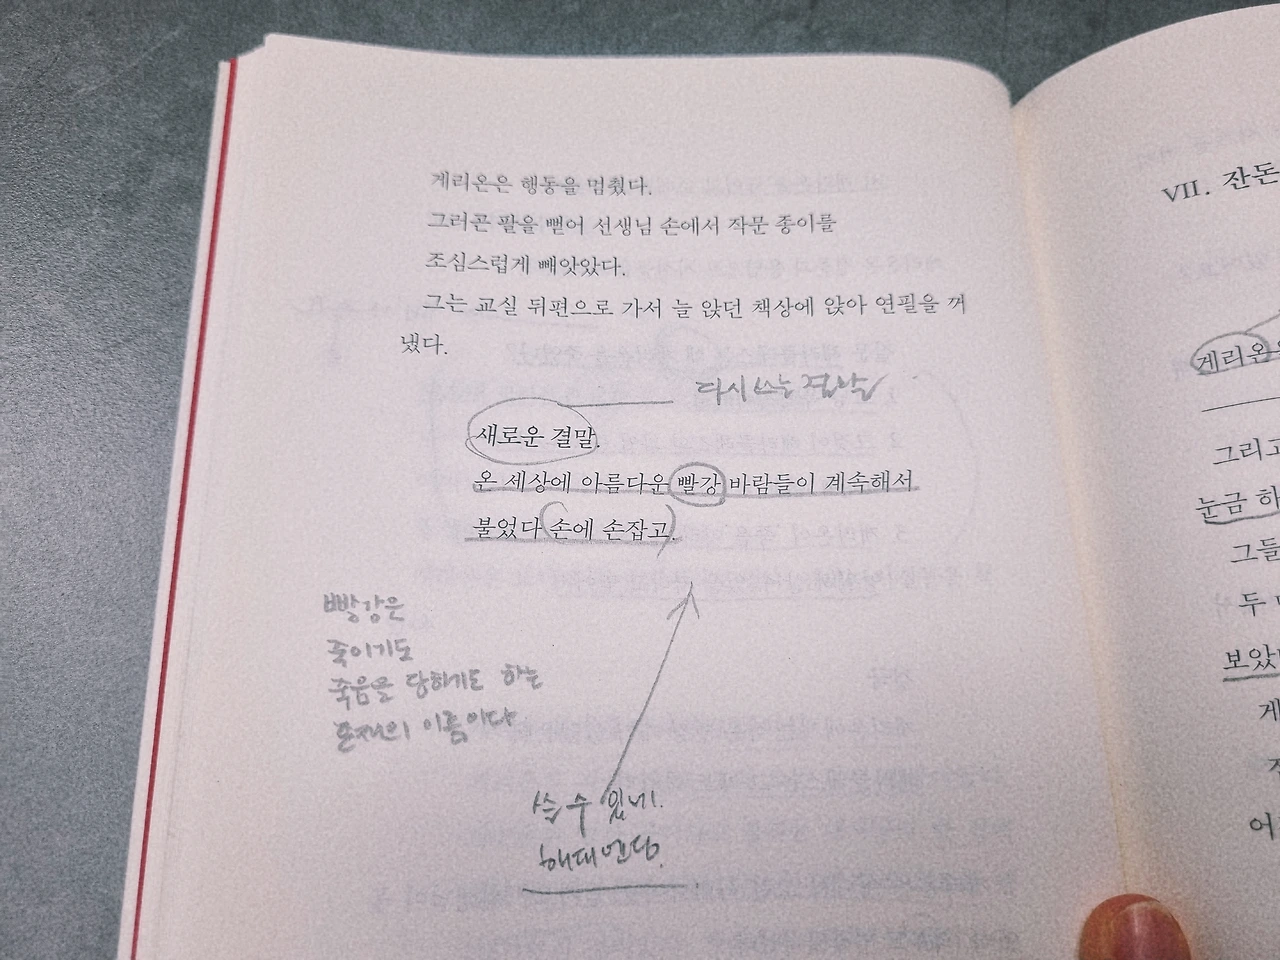 게리온은 행동을 멈췄다.
그러곤 팔을 뻗어 선생님 손에서 작문 종이를
조심스럽게 빼앗았다.
그는 교실 뒤편으로 가서 늘 앉던 책상에 앉아 연필을 꺼
냈다.
다시 쓰는 결말
새로운 결말.
온 세상에 아름다운 빨강 바람들이 계속해서
불었다 손에 손잡고.
빨강은
죽이기도
죽음을 당하기도 하는
존재의 이름이다
쓸 수 있네!
해대면당.
VII. 잔돈
게리온은
그리고
눈금 하
그들
두
보았
게
어